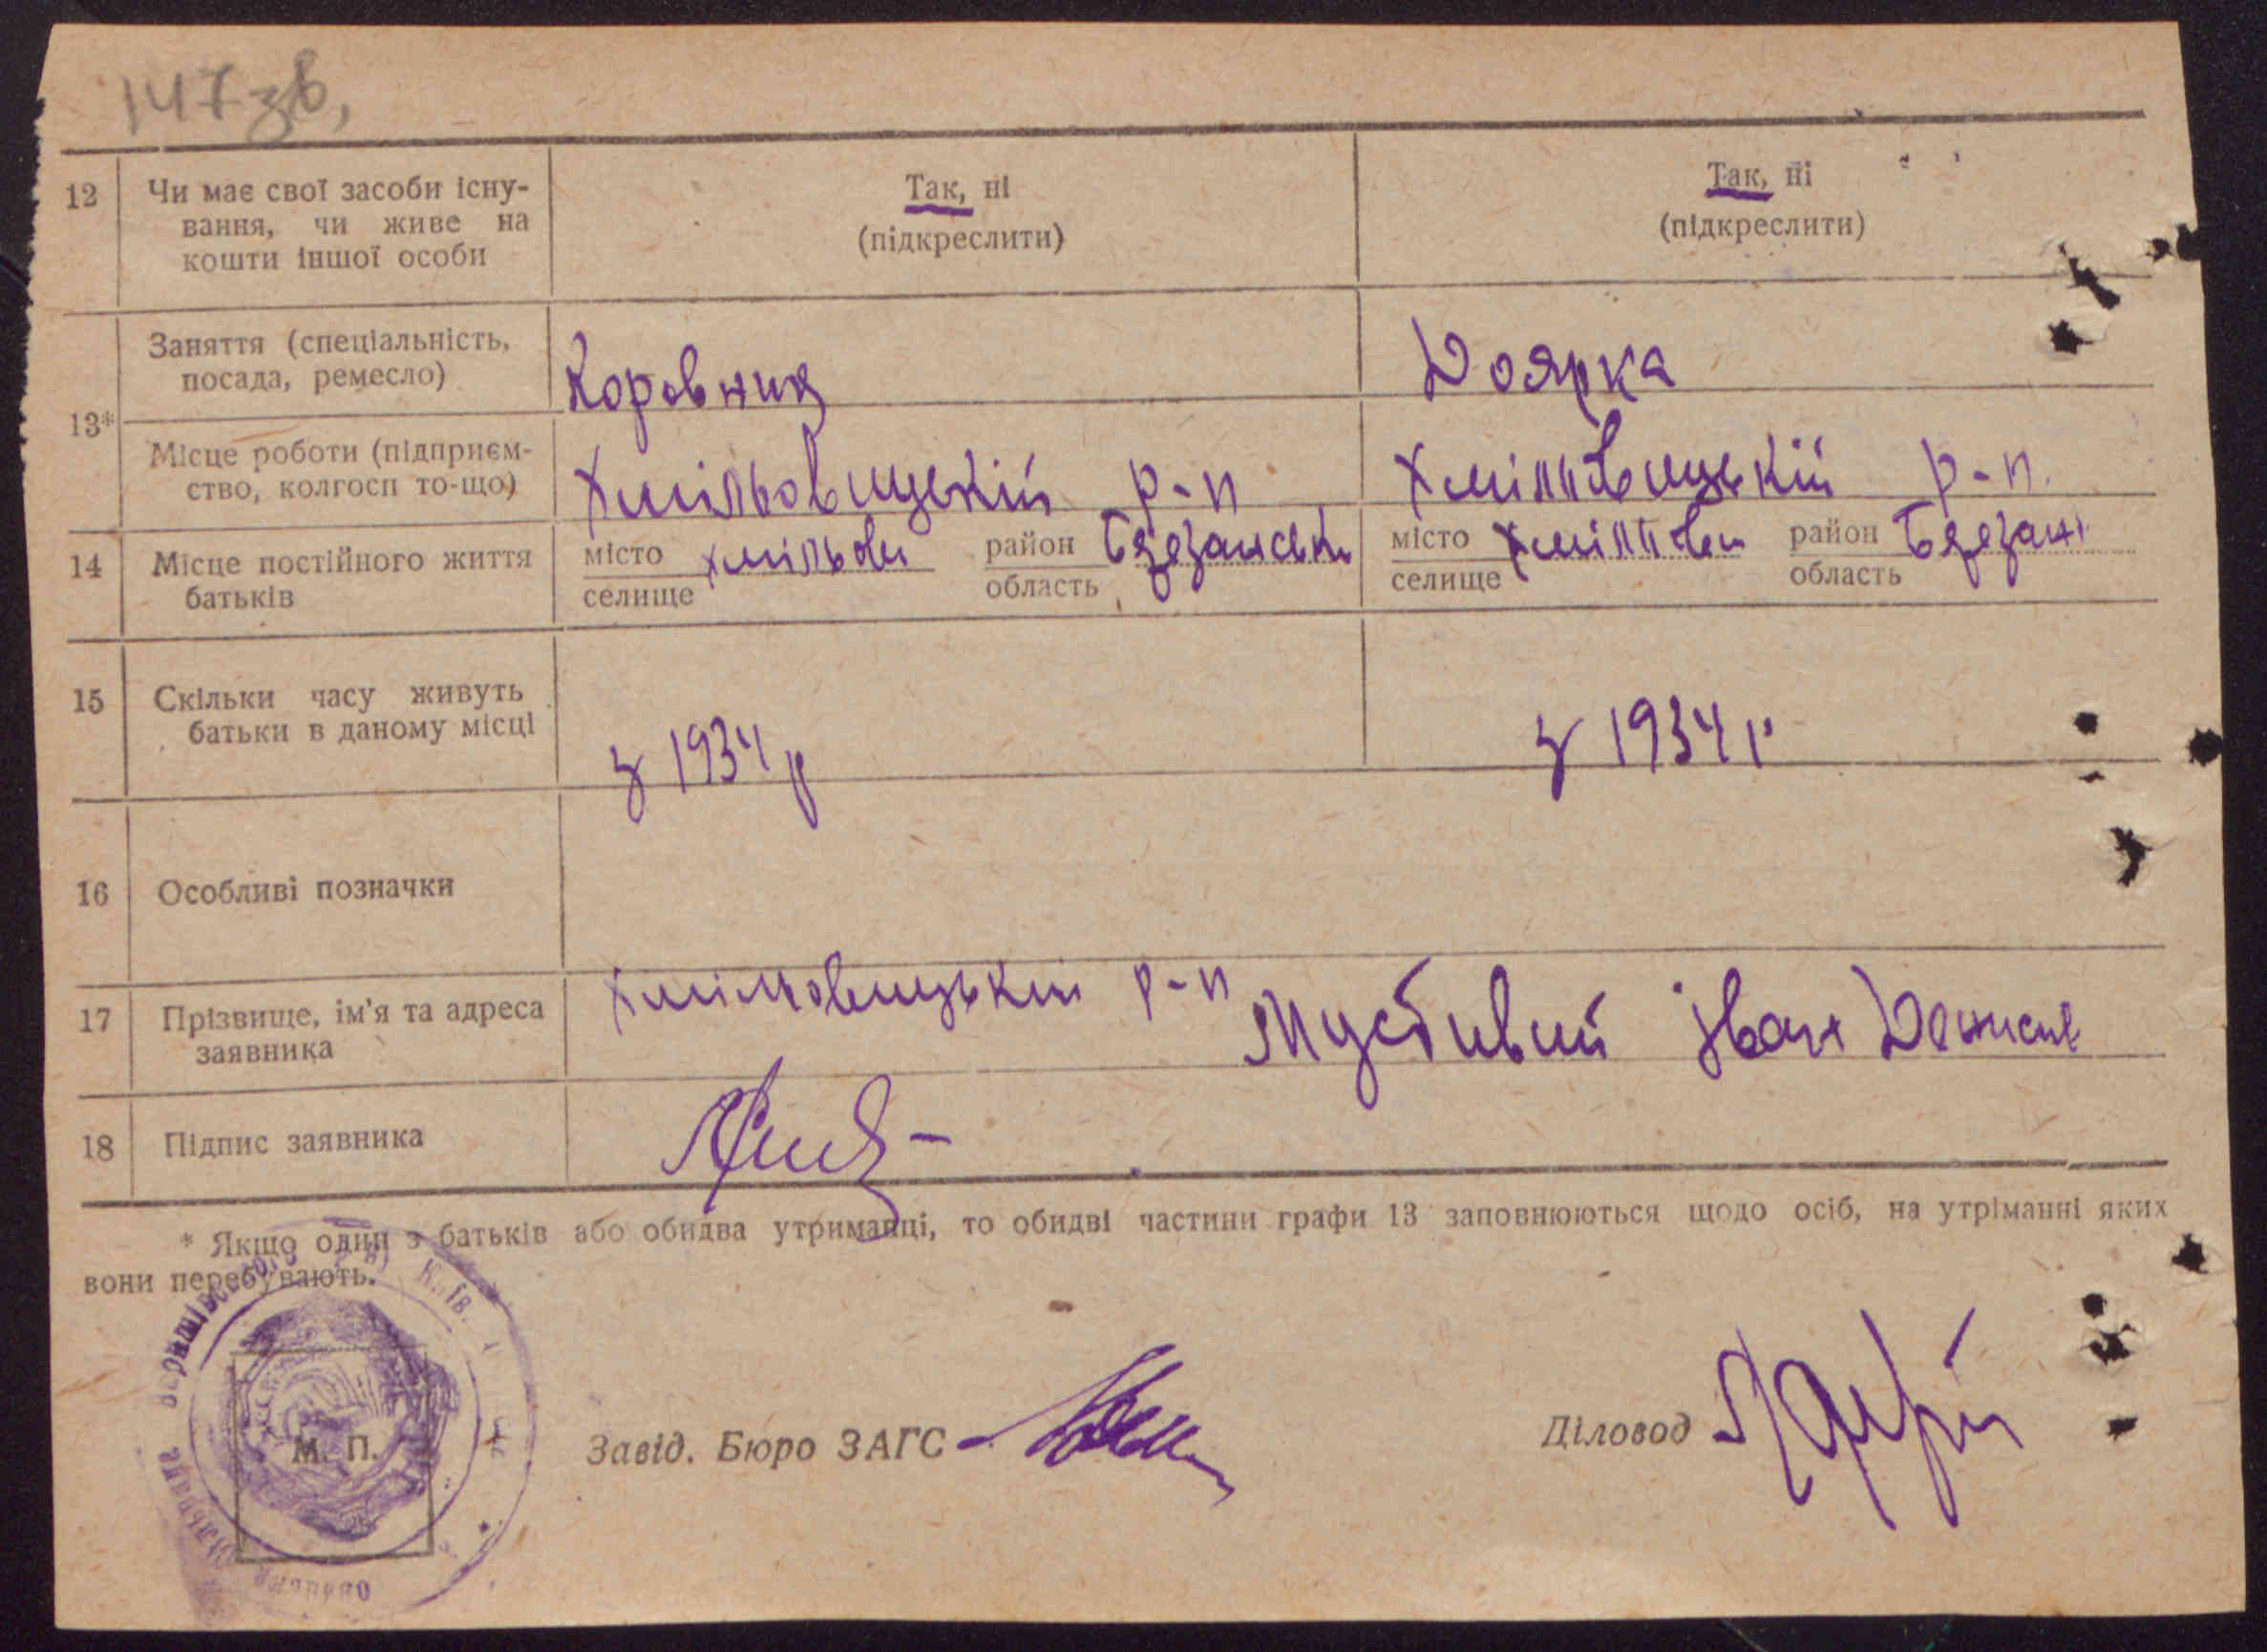 147 зв,
12 Чи має свої засоби існу- Так, ні Так, ні
вання, чи живе на (підкреслити) (підкреслити)
кошти іншої особи
13* Заняття (спеціальність,
посада, ремесло) Коровник Доярка
Місце роботи (підприєм-
ство, колгосп то-що) Хмільовицькій р-п Хмільовицькій р-п.
14 Місце постійного життя місто Хмільови район область місто Хмільови район
батьків селище селище область
15 Скільки часу живуть
батьки в даному місці з 1934 р з 1934 р
16 Особливі позначки
17 Прізвище, ім'я та адреса Хмільовицькій р-п Іван
заявника
18 Підпис заявника
* Якщо один з батьків або обидва утриманці, то обидві частини графи 13 заповнюються щодо осіб, на утріманні яких
вони перебувають.
М. П.
Завід. Бюро ЗАГС Діловод